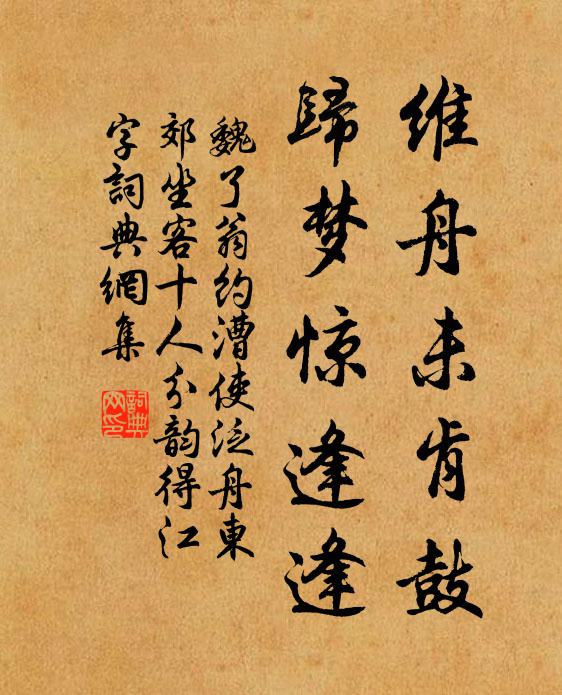 维舟未肯鼓
歸梦惊逢逢
魏了翁约漕使泛舟東
郊坐客十人分韵得江
字詞典網集
詞典
网印